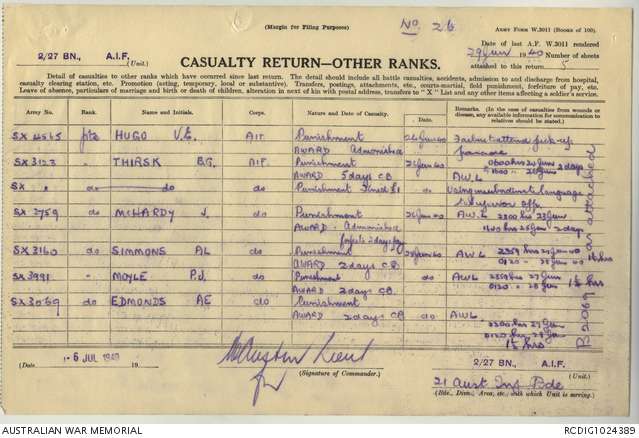 (Margin for Filing Purposes)
No 26
ARMY FORM W.3011 (BOOKS OF 100).
2/27 BN., A.I.F. (Unit.)
Date of last A.F. W.3011 rendered
29 June 1940 Number of sheets
attached to this return 5
CASUALTY RETURN—OTHER RANKS.
Detail of casualties to other ranks which have occurred since last return. The detail should include all battle casualties, accidents, admission to and discharge from hospital,
casualty clearing station, etc. Promotion (acting, temporary, local or substantive). Transfers, postings, attachments, etc., courts-martial, field punishment, forfeiture of pay, etc.
Leave of absence, particulars of marriage and birth or death of children, alteration in next of kin with postal address, transfers to "X" List and any other items affecting a soldier's service.
Army No. Rank. Name and Initials. Corps. Nature and Date of Casualty. Remarks. (In the case of casualties from wounds or disease, any available information for communication to relations should be stated.)
SX 4565 pte HUGO V.E. AIF. Punishment 26 June 40 Failing to attend pick-up
AWARD Admonished parade
SX 3123 " THIRSK B.G. AIF. Punishment 0600 hrs 20 June 2 days
AWARD 5 days C.B. A.W.L
SX " do do do Punishment Fined £1 do Using insubordinate language
to superior offr
SX 3759 do McHARDY J. do Punishment 26 June 40 A.W.L 2300 hrs 23 June
AWARD. Admonished 1600 hrs 25 June 2 days
forfeits 2 days pay
SX 3160 do SIMMONS AL do Punishment AWL 2359 hrs 27 June 40
AWARD 2 days C.B. 0120 28 June 1½ hrs
SX 3991 " MOYLE P.J. do Punishment do AWL 2359 hrs 27 June
AWARD 2 days CB. 0120 28 June 1½ hrs
SX 3069 do EDMONDS AE do Punishment
AWARD 2 days CB do AWL
2200 hrs 27 June
0120 hrs 28 June
1½ hrs
B 2069 attached
(Date - 6 JUL 1940 19 )
Lieut
(Signature of Commander.)
2/27 BN., A.I.F.
21 Aust Inf Bde
(Bde., Divn., Area, etc., with which Unit is serving.)
AUSTRALIAN WAR MEMORIAL
RCDIG1024389